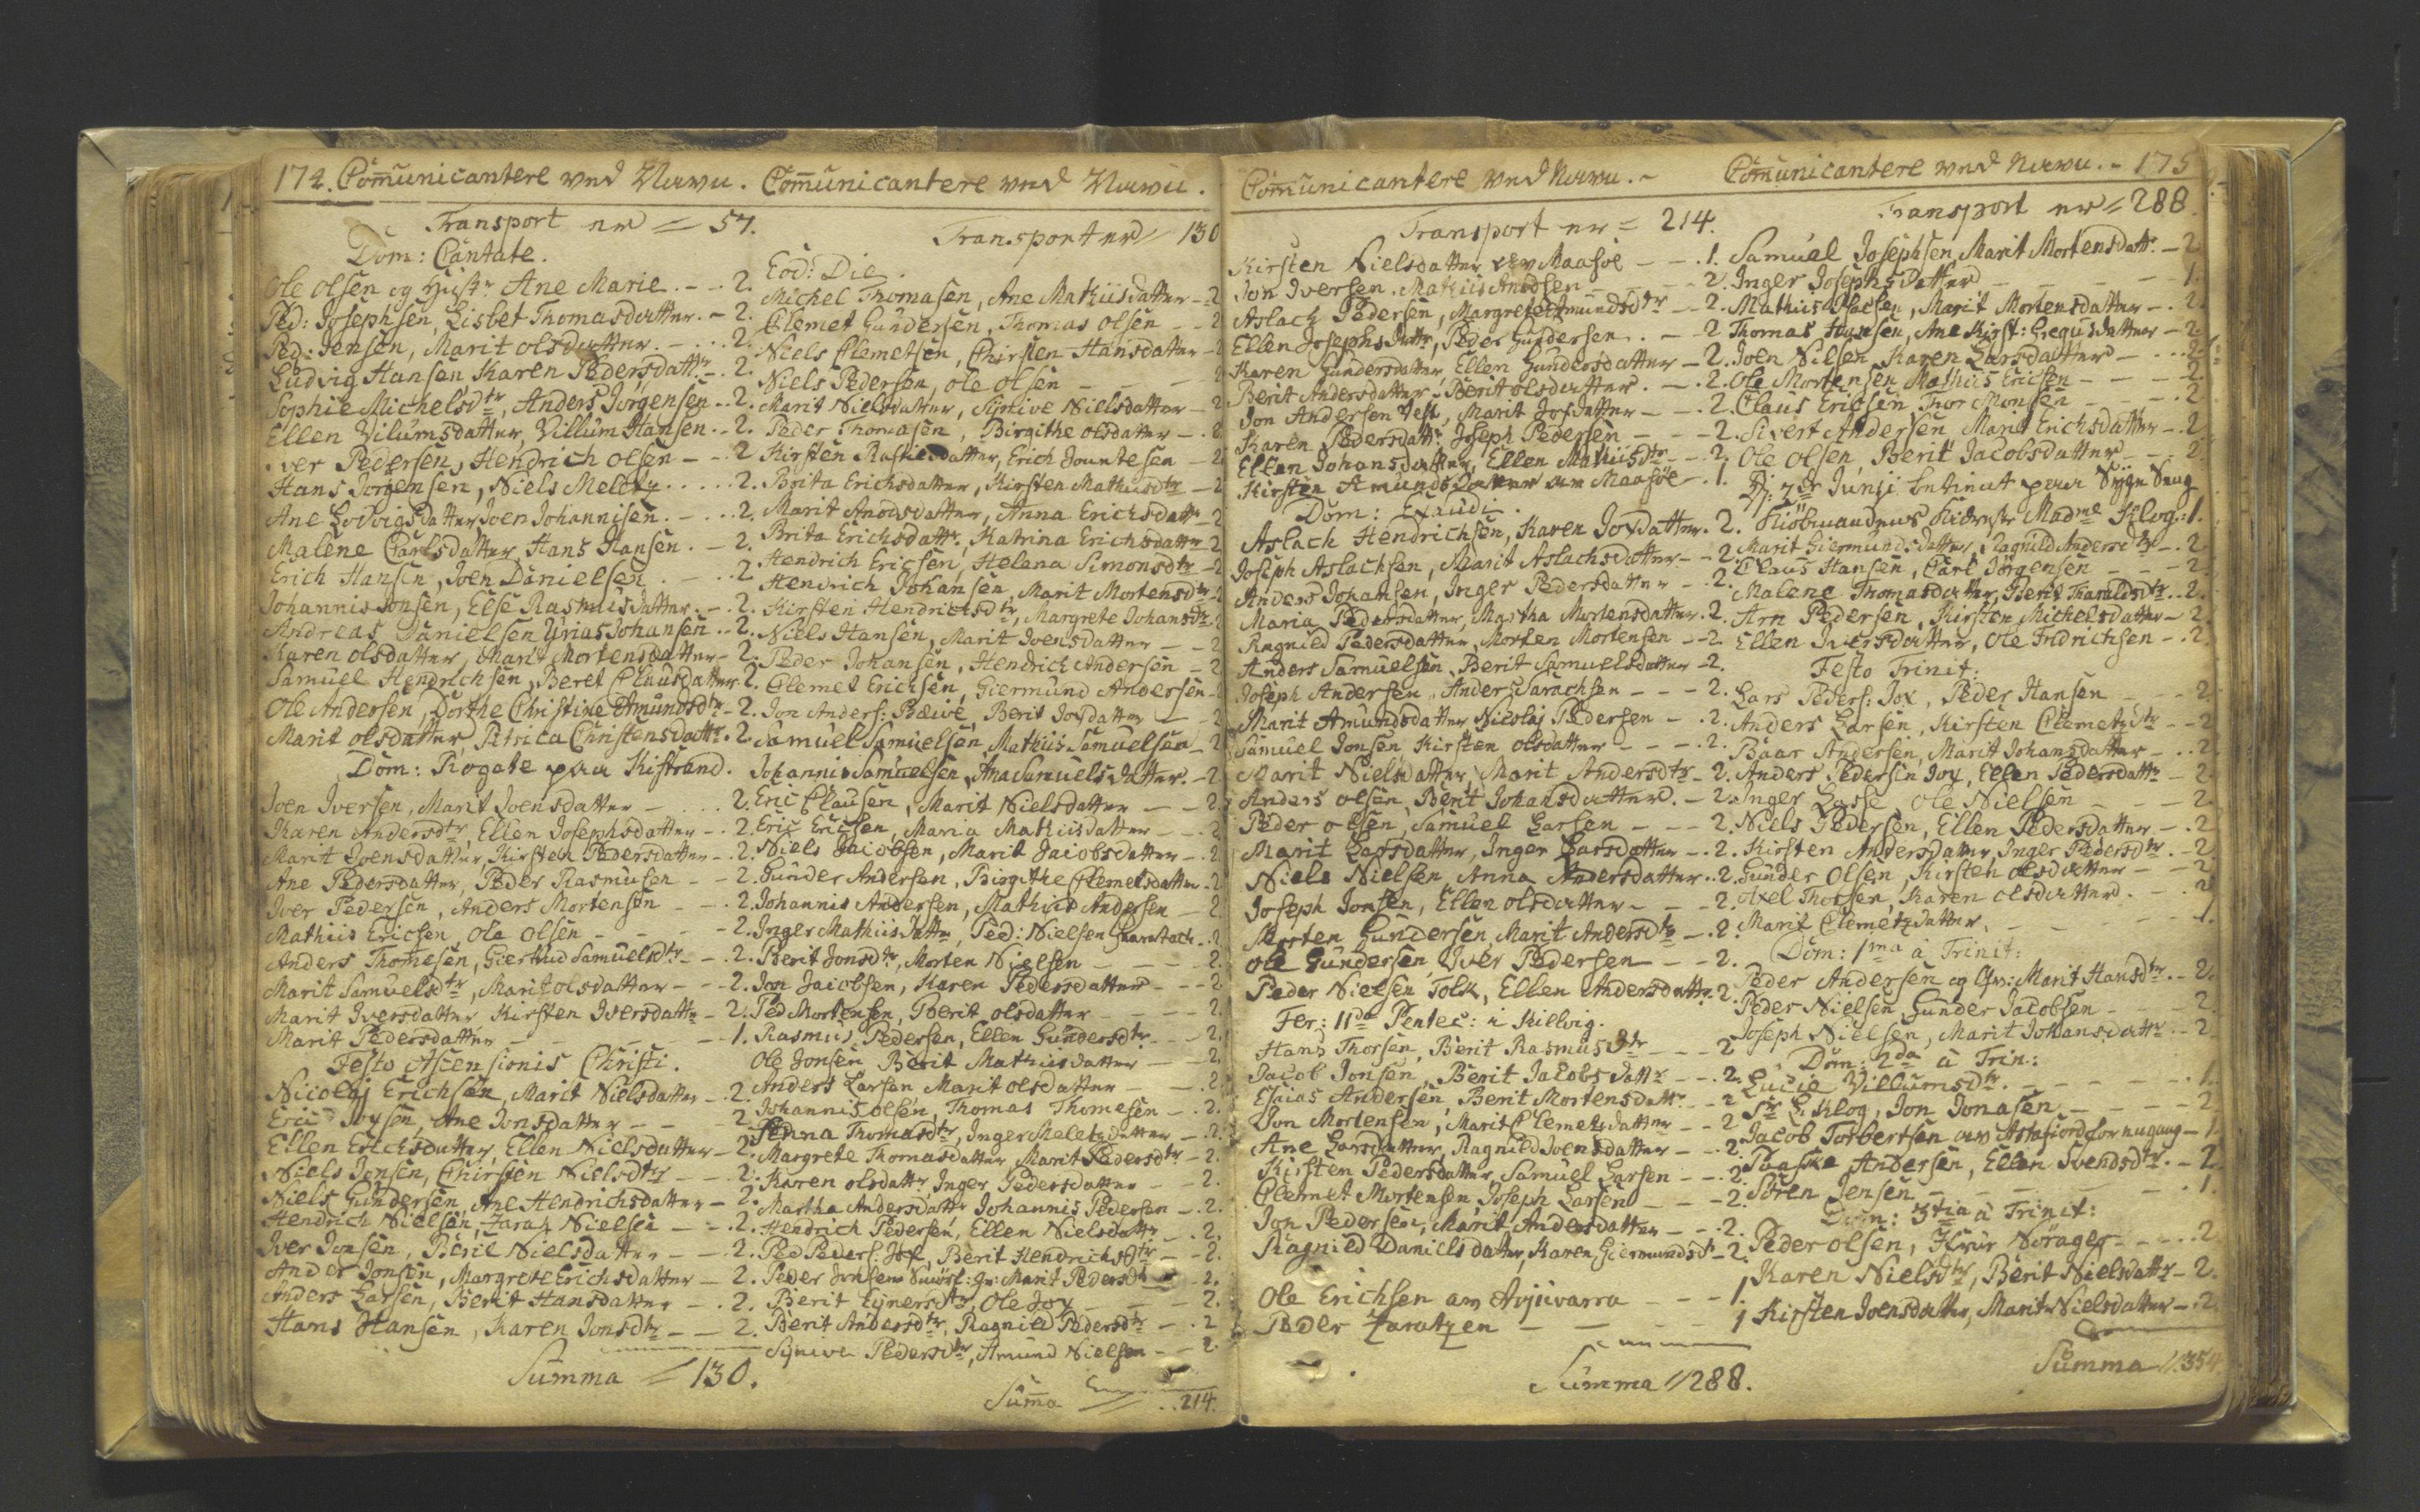 174. Com̄unicantere ved Navn.
Transport er = 57.
Dom: Cantate.
Ole Olsen og Hustr Ane Marie - - 2.
Ped: Josephsen, Lisbet Thomasdatter. - 2.
Ped: Jensen, Marit olsdatter. - . . . 2.
Ludvig Hansen Karen Pedersdattr. - . 2.
Sophie Michelsdtr, Anders Jörgensen . . 2.
Ellen Vilumsdatter, Villum Hansen . . 2.
ver Pedersen, Hendrich olsen - - 2
Hans Jörgensen, Niels Meletz . . . . . 2.
Ane Lodvigsdatter Joen Johannisen. - . . . 2.
Malene Carlsdatter Hans Hansen. - 2.
Erich Hansen, Joen Danielsen . - . . 2
Johannis Jonsen, Else Rasmusdatter. - . 2.
Andreas Danielsen Urias Johansen . . 2.
Karen olsdatter, Marit Mortensdatter - 2.
Samuel Hendrichsen, Beret Clausdatter 2.
Ole Andersen, Dorthe Christine Amundsdtr - 2.
Marit olsdatter, Petrica Christensdattr. 2.
Dom: Rogate paa Kistrand.
Joen Iversen, Marit Joensdatter - . . . 2.
Karen Andersdtr, Ellen Josephsdatter - . 2.
Marit Joensdatter, Kirsten Pedersdatter - . 2.
Ane Pedersdatter, Peder Rasmusen - - 2.
Iver Pedersen, Anders Mortensen - - . 2.
Mathiis Ericsen, Ole Olsen - - - - 2.
Anders Thomesen, Gierthrud Samuelsdtr - . 2.
Marit Samuelsdtr, Marit olsdatter - - 2.
Marit Iversdatter Kirsten Iversdattr - 2.
Marit Pedersdatter - - - - 1.
Festo Ascensionis Christi.
Nicolaj Erichsen, Marit Nielsdatter - . 2.
Eric Joysen, Ane Jonsdatter - - - 2
Ellen Erichsdatter, Ellen Nielsdatter - 2.
Niels Jensen, Chirsten Nielsdtr - - 2.
Niels Gundersen, Ane Hendrichsdatter - 2.
Hendrich Nielsen, Zara Nielsen - - . 2.
Iver Jonsen, Berit Nielsdatter - - . 2.
Ander Jonsen, Margrete Erichsdatter - 2.
Anders Larsen, Berit Hansdatter - . 2.
Hans Hansen, Karen Jonsdtr - - 2.
Summa = 130.
Com̄unicantere ved Navn.
Transport er = 130
Eod: Die.
Michel Thomasen, Ane Mathiisdatter - 2
Clemet Gundersen, Thomas olsen - - 2
Niels Clemetsen, Chirsten Hansdatter - 2
Niels Pedersen, ole olsen - - - 2
Marit Nielsdatter, Synive Nielsdatter - 2
Peder Thomasen, Birgithe olsdatter - . 2.
Kirsten Rasmusdatter, Erich Jountesen - 2
Brita Erichsdatter, Kirsten Mathiisdtr - 2
Marit Andersdatter, Anna Erichsdattr - 2
Brita Erichsdattr. Katrina Erichsdatter 2
Hendrich Ericsen, Helena Simonsdtr - 2
Hendrich Johansen, Marit Mortensdtr - 2
Kirsten Hendrichsdtr, Margrete Johansdtr. 2
Niels Hansen, Marit Joensdatter - - 2
Peder Johansen, Hendrich Andersen - 2
Clemet Ericksen, Giermund Andersen - 2
Jon Anders: Bæive, Berit Joxdatter - - 2
Samuel Samuelsen, Mathiis Samuelsen - 2
Johannis Samuelsen, Ana Samuelsdatter. - 2
Eric Clausen, Marit Nielsdatter - - 2.
Eric Ericsen, Maria Mathiisdatter - - . 2
Niels Jacobsen, Marit Jacobsdatter - . 2
Gunder Andersen, Birgithe Clemetsdatter . 2
Johannis Andersen, Mathiis Andersen - 2
Inger Mathiisdatter, Ped: Nielsen . . 2
Berit Jonsdtr, Morten Nielsen - - - 2.
Jon Jacobsen, Karen Pedersdatter - - - 2
Ped Mortensen, Berit olsdatter - - - 2.
Rasmus Pedersen, Ellen Gundersdtr - - - 2.
Ole Jonsen Berit Mathiisdatter - - 2.
Anders Larsen Marit olsdatter - - . 2.
Johannis olsen, Thomas Thomesen - . 2.
Anna Thomasdtr, Inger Meletzdatter - . 2.
Margrete Thomasdatter Marit Pedersdtr - 2.
Karen olsdattr, Inger Pedersdatter - - 2.
Martha Andersdattr Johannis Pedersen - . 2.
Hendrich Pedersen, Ellen Nielsdattr - . 2.
Ped Peders: Jox, Berit Hendrichsdtr - - 2.
Peder Jonsen Marit Pedersdtr 2.
Berit Ejnersdtr, Ole Joy - - - 2.
Berit Andersdtr, Ragnild Pedersdtr - . 2
Synive Pedersdtr, Amund Nielsen - - 2.
Sum̄a = . . 214.
Com̄unicantere ved Navn. -
Transport er = 214.
Kirsten Nielsdatter av Maasöe - - . 1.
Jon Iversen. Mathiis Andersen - - - 2
Aslach Pedersen, Margrete Amundsdtr - - 2.
Ellen Josephsdattr, Peder Gundersen . - 2
Karen Gundersdatter Ellen Gundersdatter - 2.
Berit Andersdatter, Berit olsdatter. - . 2.
Jon Andersen Marit Joxdatter - - . 2.
Karen Pedersdattr. Joseph Pedersen - - - 2.
Ellen Johansdatter, Ellen Mathiisdtr - . 2.
Kirsten Amundsdatter av Maasöe - . 1.
Dom: Exaudi.
Aslach Hendrichsen, Karen Joxdatter. 2.
Joseph Aslachsen, Marit Aslachsdatter - - 2
Anders Johansen, Inger Pedersdatter - . 2.
Maria Pedersdatter, Martha Mortensdatter. 2.
Ragnild Pedersdatter, Morten Mortensen - - 2
Anders Samuelsen, Berit Samuelsdatter - 2.
Joseph Andersen, Anders Sarachsen - - - 2.
Marit Amundsdatter Nicolaj Pedersen - . 2.
Samuel Jonsen Kirsten olsdatter - - - 2.
Marit Nielsdatter, Marit Andersdtr - 2.
Anders olsen, Berit Johansdatter. - 2.
Peder olsen, Samuel Larsen - - - 2.
Marit Larsdatter, Inger Larsdatter - . 2.
Niels Nielsen Anna Andersdatter. . 2.
Joseph Jonsen, Ellen olsdatter - - - 2.
Morten Gundersen, Marit Andersdtr - . 2.
Ole Gundersen, Iver Pedersen - - 2.
Peder Nielsen Tolk, Ellen Andersdattr 2.
Fer: IIda Pentec: i Killvig.
Hans Thorsen, Berit Rasmusdtr - - 2
Jacob Jonsen, Berit Jacobsdattr - - . 2.
Esaias Andersen, Berit Mortensdattr - - 2
Jon Mortensen, Marit Clemetsdatter - - 2
Ane Larsdatter, Ragnild Joensdatter - - 2.
Kirsten Pedersdatter, Samuel Larsen - - . 2.
Clemet Mortensen, Joseph Larsen - - 2.
Jon Pedersen, Marit Andersdatter - - . 2.
Ragnild Danielsdatter, Karen Giermundsdtr - 2.
Ole Erichsen av Avjuvarra - - - 1.
Peder Zaratzen - - - - 1
Summa = 288.
Com̄unicantere ved Navn. - 175
Transport er = 288.
Samuel Josephsen, Marit Mortensdattr. - 2
Inger Josephsdatter - - - - 1.
Mathiis Isacsen, Marit Mortensdatter - . 2
Thomas Hansen, Ane Kirst: Gregusdatter - 2.
Joen Nilsen, Karen Larsdatter - . . . 2.
Ole Mortensen, Mathiis Ericsen - - - 2.
Claus Ericsen, Thor Monsen - - - . 2
Sivert Andersen Marit Erichsdatter - . 2
Ole Olsen, Berit Jacobsdatter - - 2.
D: 7de Junji betient paa Syge Seng
Kiöbmandens Kiereste Madme Klog. : 1.
Marit Giermundsdatter, Ragnild Andersdtr - . 2
Claus Hansen, Carl Jörgensen - - - 2
Malene Thomasdatter, Berit Tharaldsdtr. . 2.
Arn Pedersen, Kirsten Michelsdatter - 2
Ellen Iversdatter, Ole Fridrichsen - . 2
Festo Trinit:
Lars Peders: Jox, Peder Hansen - - - 2
Anders Larsen, Kirsten Clemetzdtr - - 2
Baar Andersen, Marit Johansdatter - . . 2
Anders Pedersen Joy, Ellen Pedersdattr - 2
Inger Lasse, Ole Nielsen - - - 2.
Niels Pedersen, Ellen Pedersdatter - . 2
Kirsten Andersdatter, Inger Pedersdtr. - 2
Gunder Olsen, Kirsten olsdatter - - 2
Axel Thorsen, Karen olsdatter. - . 2
Marit Clemetzdatter. - - - - 1.
Dom: 1ma a Trinit:
Peder Andersen og Qv: Marit Hansdtr - . 2.
Peder Nielsen, Gunder Jacobsen - - - 2
Joseph Nielsen, Marit Johansdattr. - 2
Dom: 2da a Trin:
Lucia Villumsdtr. - - - - . 1.
Sr L. Klog, Jon Jonasen - - - 2
Jacob Torbertsen - 1.
Paaske Andersen, Ellen Svendsdtr. - 2
Sören Jensen - - - - - . 1.
Dom: 3tia a Trinit:
Peder olsen, Iver Nörager - . . . 2
Karen Nielsdtr, Berit Nielsdattr - 2.
Kirsten Joensdatter, Marit Nielsdatter - . 2.
Summa = 354